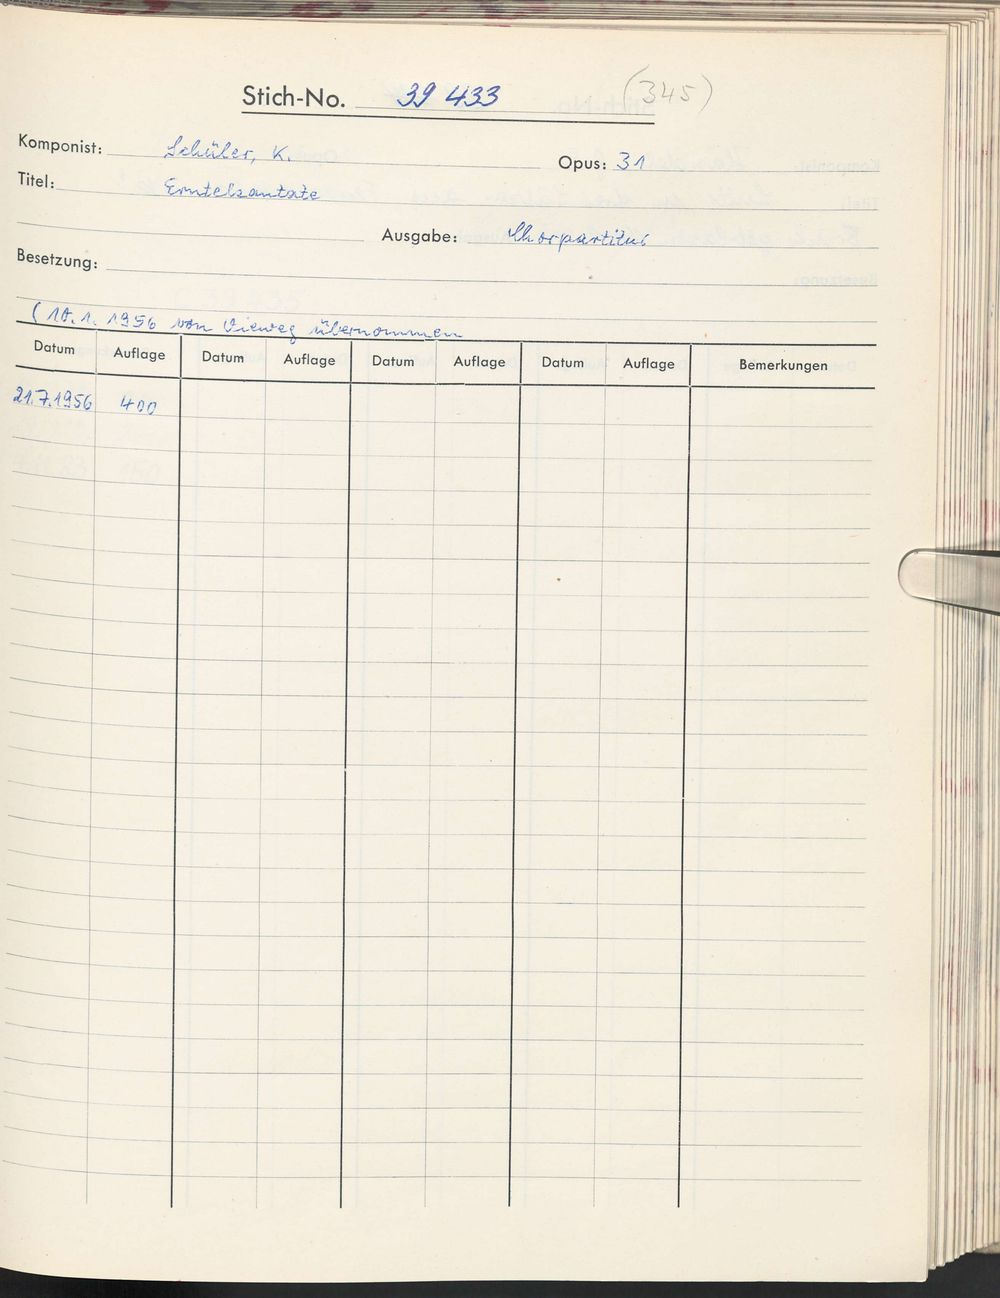 Stich-No. 39 433 (345)
Komponist: Schüler, K. Opus: 31
Titel: Erntekantate
Ausgabe: Chorpartitur
Besetzung:
(10.1.1956 von Vieweg übernommen
Datum Auflage Datum Auflage Datum Auflage Datum Auflage Bemerkungen
21.7.1956 400